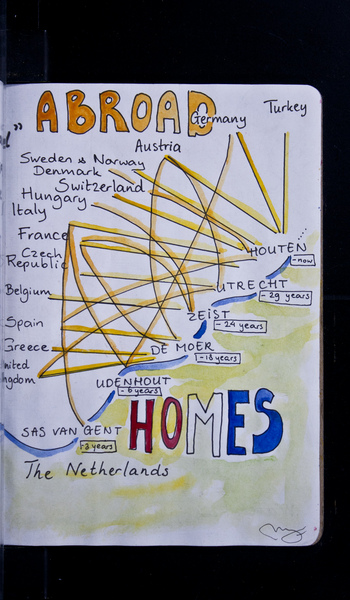 ABROAD
Germany
Turkey
Austria
Sweden & Norway
Denmark
Switzerland
Hungary
Italy
France
Czech
Republic
HOUTEN
-now
Belgium
UTRECHT
- 29 years
Spain
ZEIST
- 24 years
Greece
DE MOER
- 18 years
nited
ngdom
UDENHOUT
- 6 years
HOMES
SAS VAN GENT
- 3 years
The Netherlands